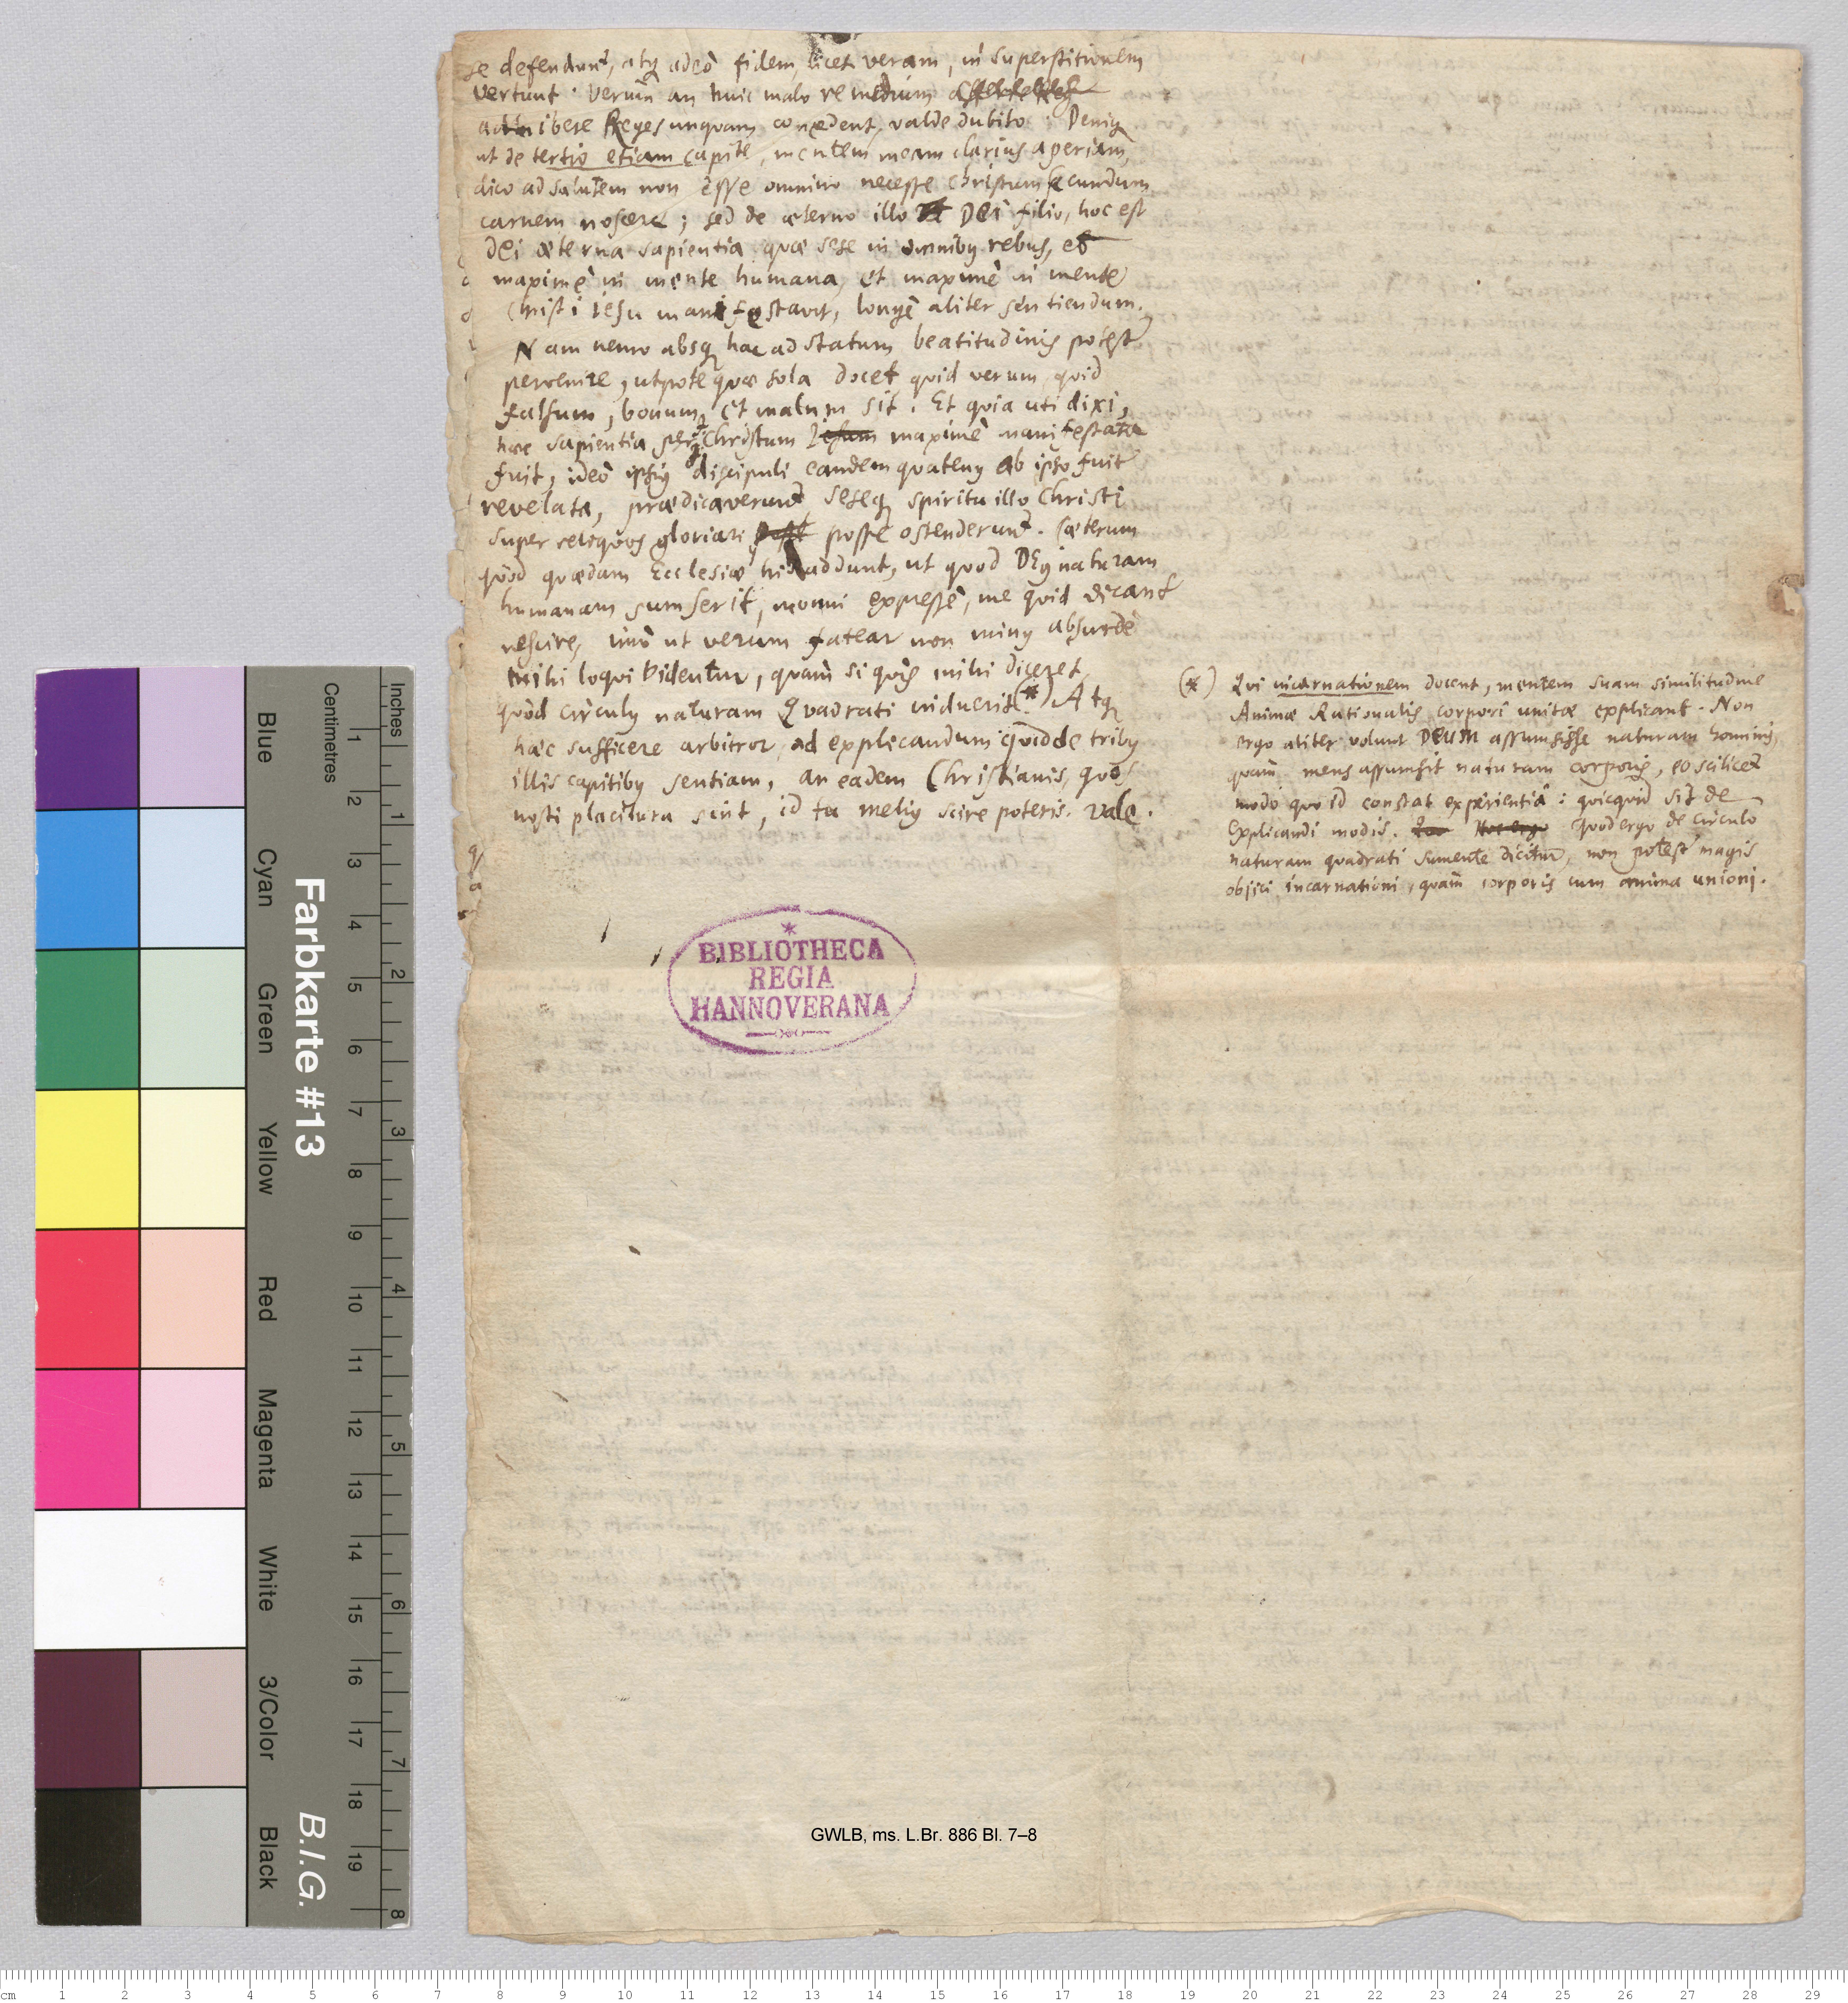 se defendunt, atq adeò fidem, licet veram, in superstitionem
vertunt. Verùm an huic malo remedium
adhibere Reges unquam concedent, valde dubito. Deniq
ut de tertio etiam capite, mentem meam clarius aperiam,
dico ad salutem non esse omnino necesse Christum secundum
carnem noscere; sed de æterno illo Dei filio, hoc est
Dei æterna sapientia quæ sese in omnibus rebus, et
maximè in mente humana, et maximè in mente
Christi Iesu manifestavit, longè aliter sentiendum.
Nam nemo absq hac ad statum beatitudinis potest
pervenire, utpote quæ sola docet quid verum quid
falsum, bonum, et malum sit. Et quia uti dixi,
hæc sapientia per Christum Iesum maximè manifestata
fuit, ideò ipsius discipuli eandem quatenus ab ipso fuit
revelata, prædicaverunt, seseq spiritu illo Christi
super reliquos gloriari posse ostenderunt. Cæterum
quod quædam Ecclesiæ his addunt, ut quod Deus naturam
humanam sumserit, monui expressè, me quid dicant
nescire, imò ut verum fatear non minus absurdè
mihi loqui videntur, quam si quis mihi diceret,
quod circulus naturam Quadrati induerit (*) Atq
hæc sufficere arbitror ad explicandum quid de tribus
illis capitibus sentiam, an eadem Christianis, quos
nosti placitura sint, id tu melius scire poteris. Vale.
(*) Qui incarnationem docent, mentem suam similitudine
Animæ Rationalis corpori unitæ explicant. Non
ergo aliter volunt Deum assumsisse naturam hominis,
quam mens assumsit naturam corporis, eo scilicet
modo quo id constat experientiâ: quicquid sit de
explicandi modis. Hoc ergo Quod ergo de circulo
naturam quadrati sumente dicitur, non potest magis
objici incarnationi, quam corporis cum anima unioni.
BIBLIOTHECA
REGIA
HANNOVERANA
GWLB, ms. L.Br. 886 Bl. 7–8
Farbkarte #13
B.I.G.
Centimetres
Inches
Blue
Cyan
Green
Yellow
Red
Magenta
White
3/Color
Black
1 2 3 4 5 6 7 8 9 10 11 12 13 14 15 16 17 18 19
1 2 3 4 5 6 7 8
cm 1 2 3 4 5 6 7 8 9 10 11 12 13 14 15 16 17 18 19 20 21 22 23 24 25 26 27 28 29